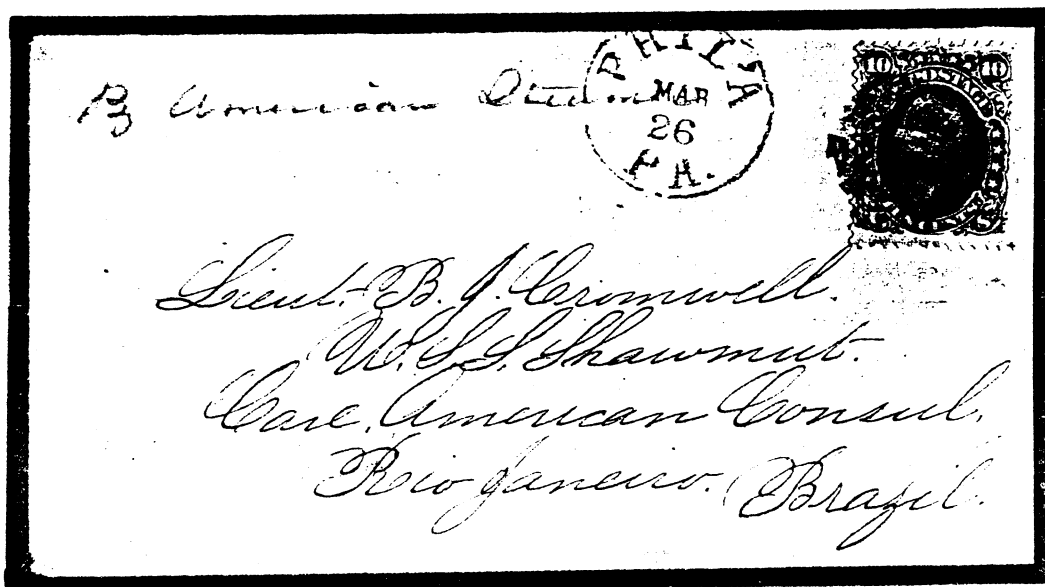 By American Steam
PHILA
MAR
26
PA.
10 10
Lieut. B. J. Cromwell.
U.S.S. Shawmut.
Care, American Consul,
Rio Janeiro. Brazil.